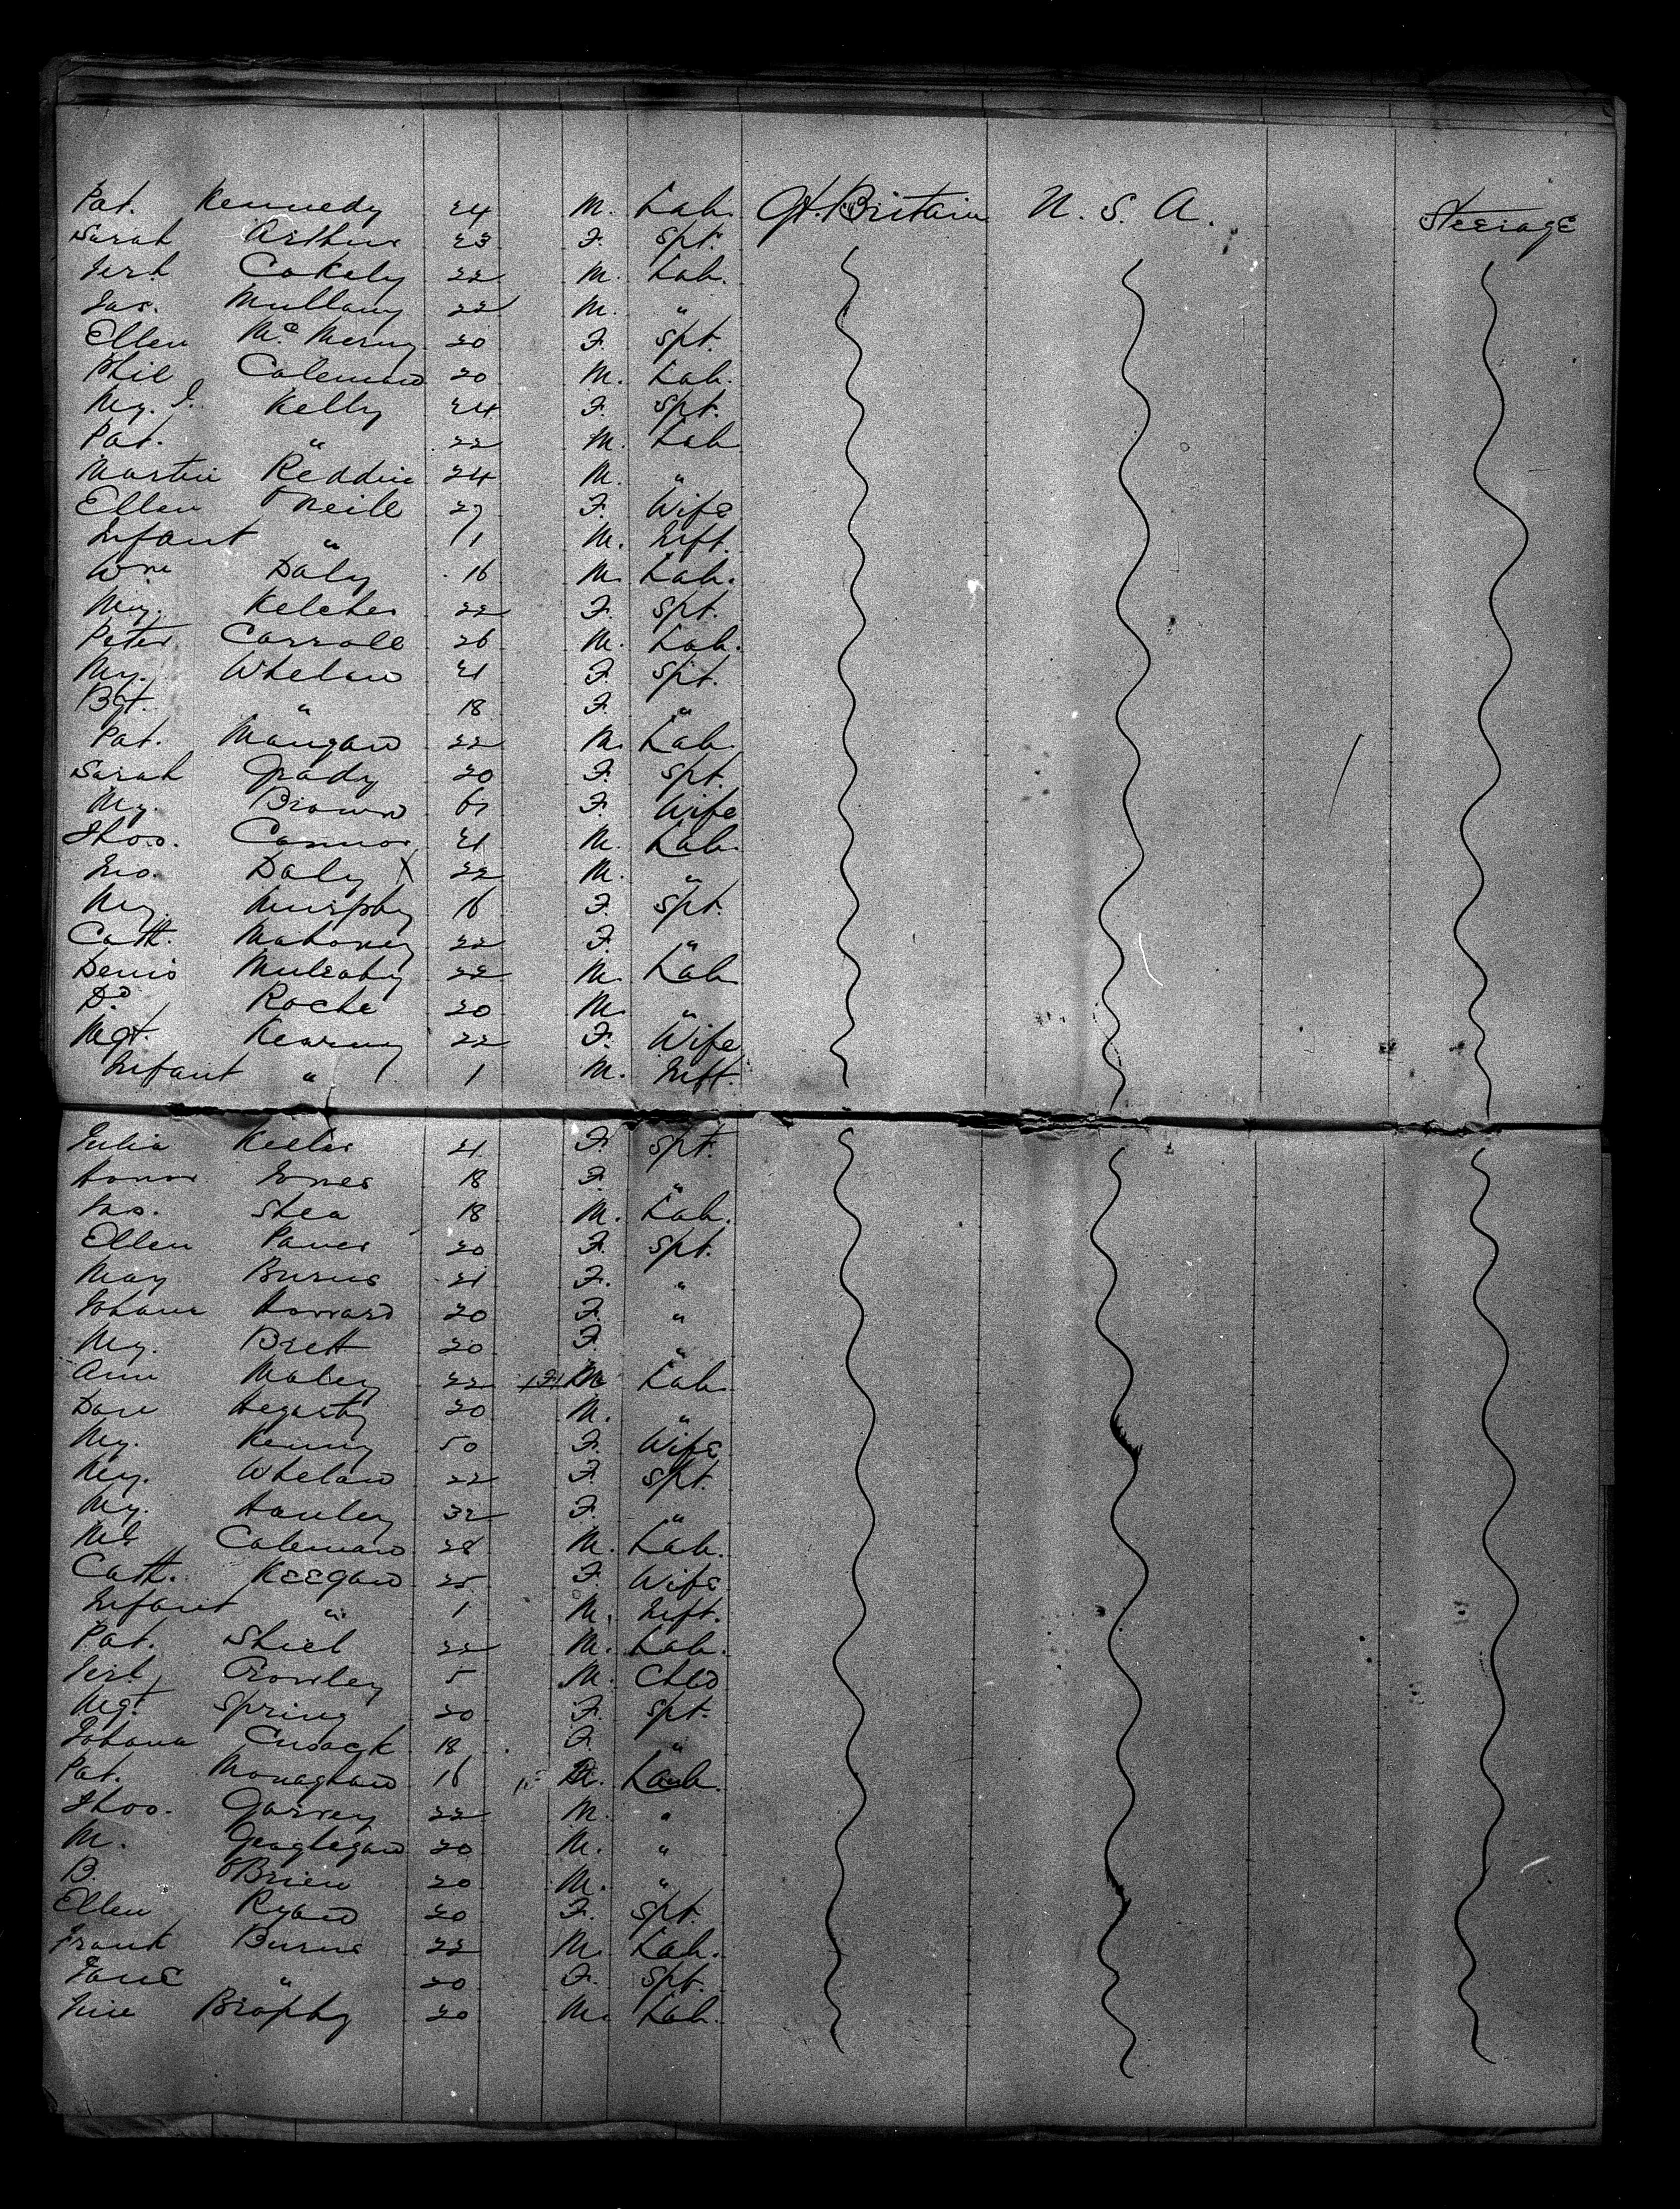 Pat. Kennedy 24 M. Lab. Gt. Britain U. S. A. Steerage
Sarah Arthur 23 F. Spt.
Jerh Cokely 22 M. Lab.
Jas. Mullany 22 M. "
Ellen Mc. 20 F. Spt.
Phil Coleman 20 M. Lab.
My. J. Kelly 24 F. Spt.
Pat. " 22 M. Lab
Martin Reddin 24 M. "
Ellen O'Neill 27 F. Wife
Infant " 11 M. Inft.
Wm Daly 16 M. Lab.
My. Kelcher 22 F. Spt.
Peter Carroll 26 M. Lab.
My. Whelan 21 F. Spt.
Bgt. " 18 F. "
Pat. Mangan 22 M. Lab.
Sarah Grady 20 F. Spt.
My. Brown F. Wife
Thos. Connor 21 M. Lab.
Jno. Daly X 22 M. "
My. Murphy 16 F. Spt.
Cath. Mahoney 22 F. "
Denis Mulcahy 22 M. Lab
Do. Roche 20 M. "
Mgt. Kearny 22 F. Wife
Infant " 1 M. Inft.
Julia 21 F. Spt.
Honor Jones 18 F. "
Jas. Shea 18 M. Lab.
Ellen Power 20 F. Spt.
May Burns 21 F. "
Johana Howard 20 F. "
My. Brett 20 F. "
Ann Maley 22 M Lab.
Dan Hegarty 20 M. "
My. Kenny 50 F. Wife
My. Whelan 22 F. Spt.
My. Hanley 32 F. "
Ml Coleman 28 M. Lab.
Cath. Keegan 25 F. Wife
Infant " 1 M. Inft.
Pat. Shiel 22 M. Lab.
Jerh Crowley 5 M. Chld
Mgt. Spring 20 F. Spt.
Johana Cusack 18 F. "
Pat. Monaghan 16 M. Lab.
Thos. Garvey 22 M. "
M. Geoghegan 20 M. "
B. O'Brien 20 M. "
Ellen Ryan 20 F. Spt.
Frank Burns 22 M. Lab.
Jane " 20 F. Spt.
Brophy 20 M. Lab.